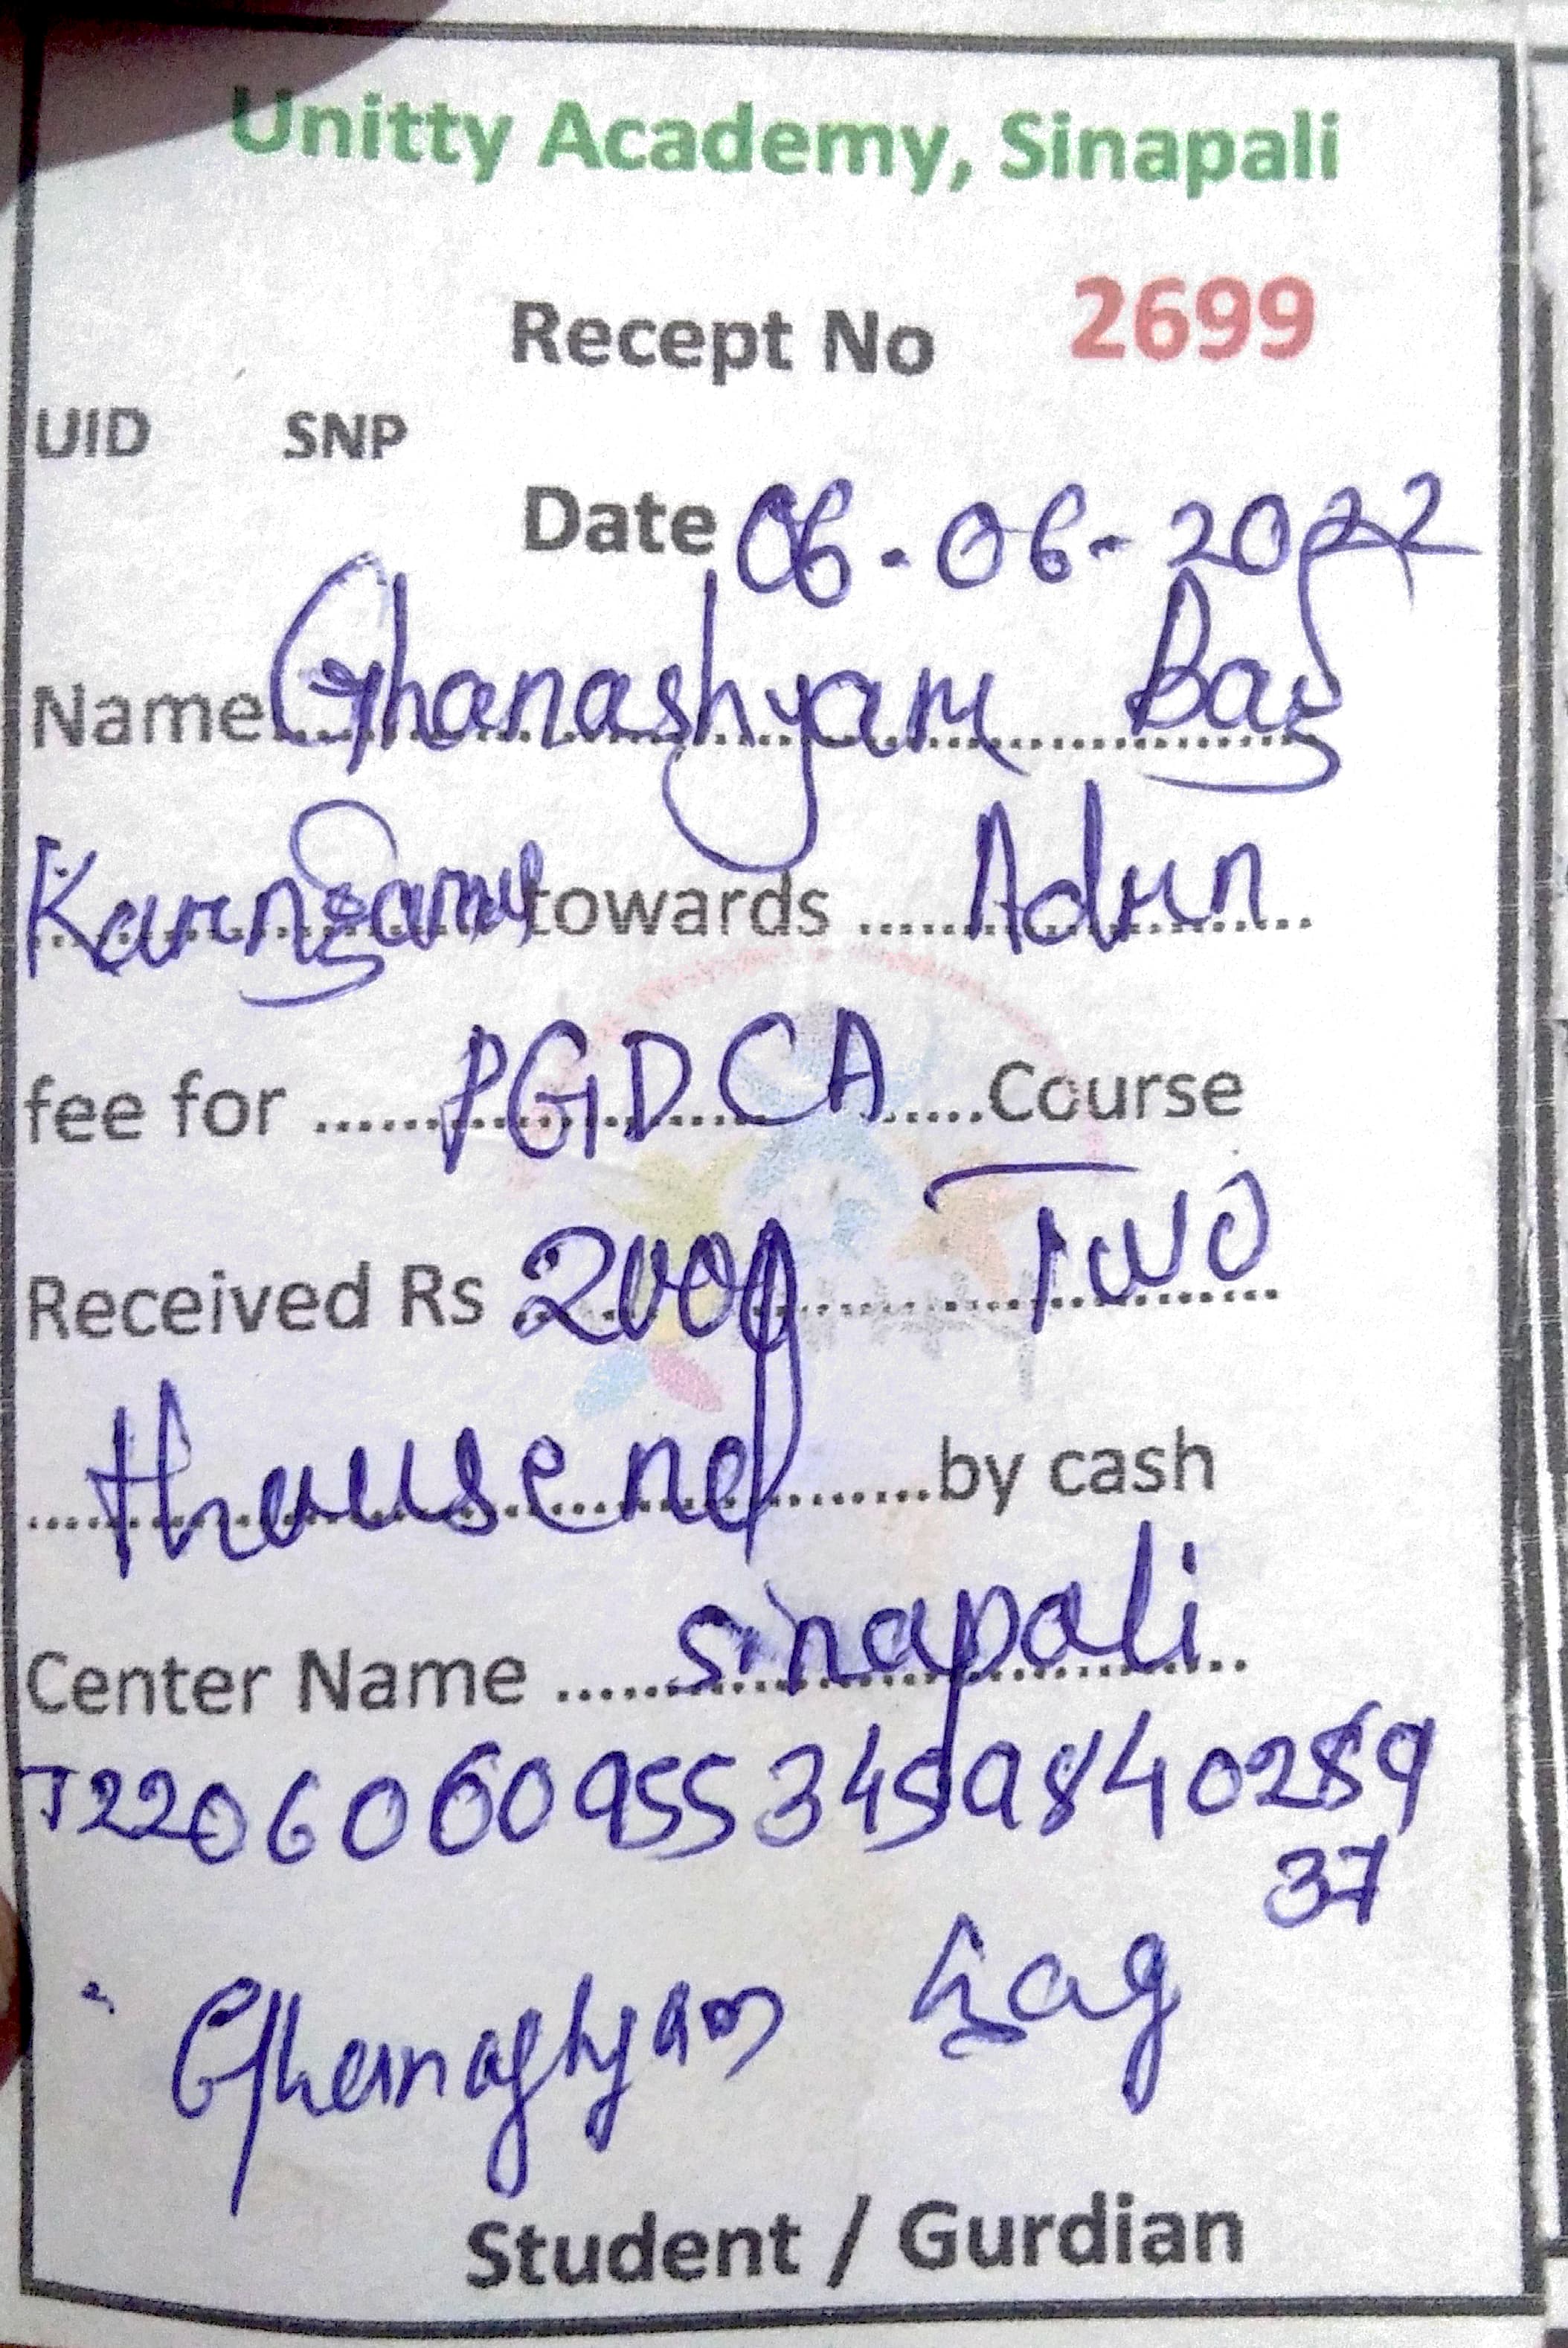 Unitty Academy, Sinapali
Recept No 2699
UID SNP
Date 06-06-2022
Name Ghanashyam Bag
towards Admn
fee for PGDCA Course
Received Rs 2000 Two
thousend by cash
Center Name Sinapali
T22060609553459840289
37
Ghanashyam Bag
Student / Gurdian